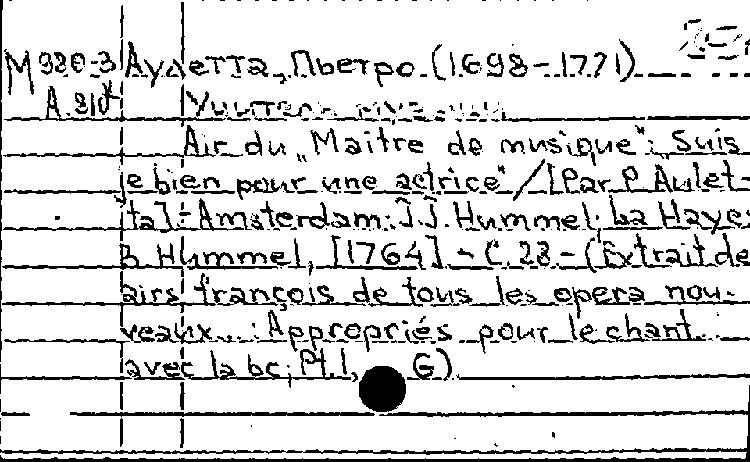 М 980-3 Аулетта, Пьетро (1698-1771)
Учитель музыки
Air du „Maitre de musique“: „Suis
je bien pour une actrice“/[Par P. Aulet-
ta].-Amsterdam: J.J. Hummel; La Haye:
B. Hummel, [1764] - C. 28 - (Extrait de
airs françois de tous les opera nou-
veaux...: Appropriés pour le chant
avec la bc; Pt. I, G)